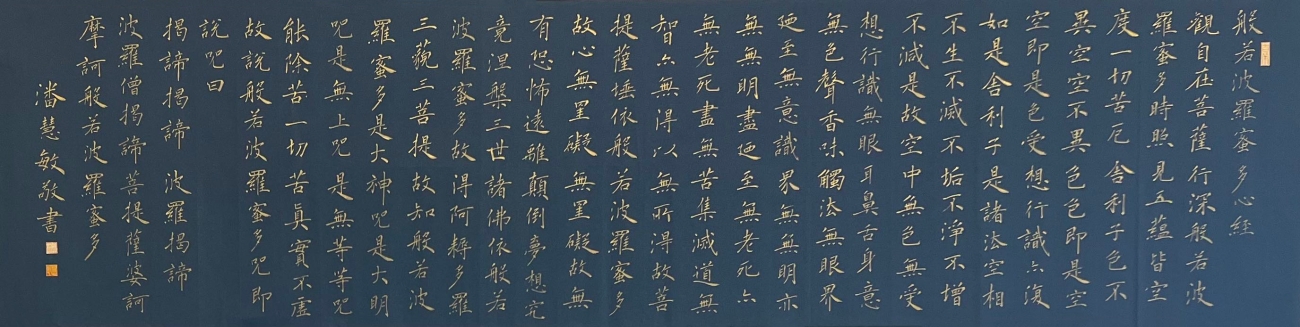 般若波羅蜜多心經
觀自在菩薩行深般若波
羅蜜多時照見五蘊皆空
度一切苦厄舍利子色不
異空空不異色色即是空
空即是色受想行識亦復
如是舍利子是諸法空相
不生不滅不垢不淨不增
不減是故空中無色無受
想行識無眼耳鼻舌身意
無色聲香味觸法無眼界
廼至無意識界無無明亦
無無明盡廼至無老死亦
無老死盡無苦集滅道無
智亦無得以無所得故菩
提薩埵依般若波羅蜜多
故心無罣礙無罣礙故無
有恐怖遠離顛倒夢想究
竟涅槃三世諸佛依般若
波羅蜜多故得阿耨多羅
三藐三菩提故知般若波
羅蜜多是大神咒是大明
咒是無上咒是無等等咒
能除苦一切苦真實不虛
故說般若波羅蜜多咒即
說咒曰
揭諦揭諦 波羅揭諦
波羅僧揭諦菩提薩婆訶
摩訶般若波羅蜜多
潘慧敏敬書